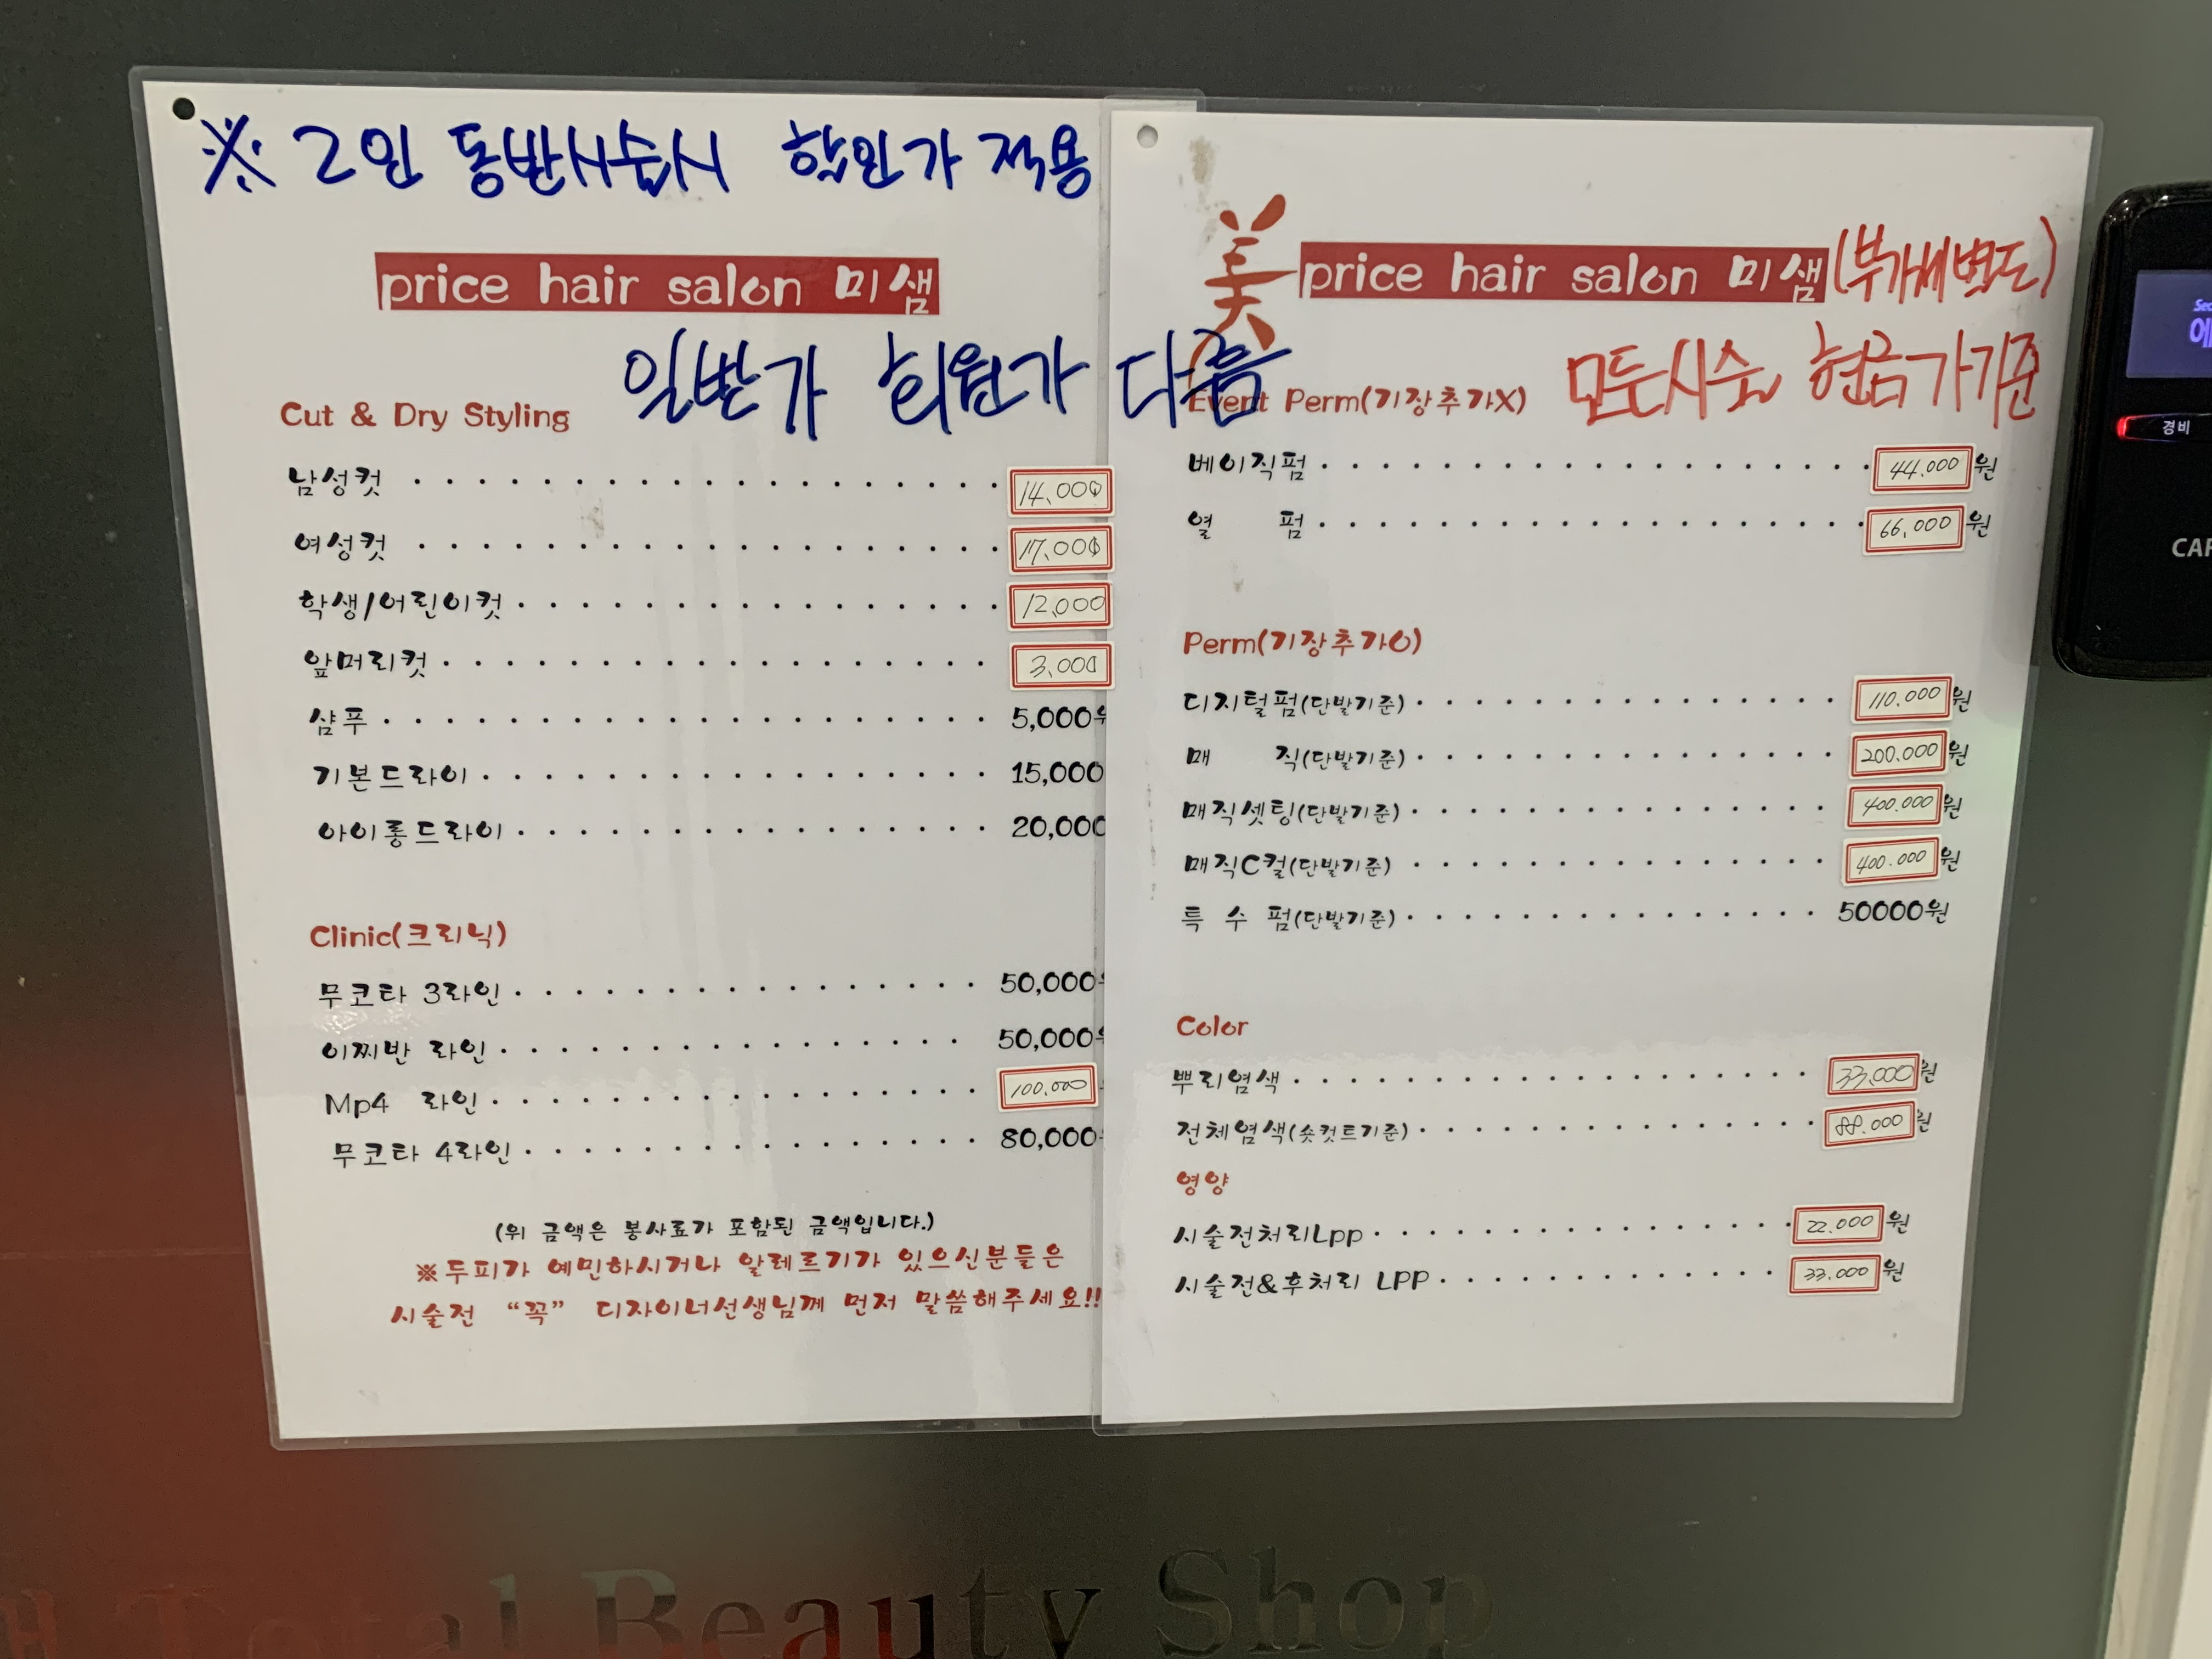 ※ 2인 동반시술시 할인가 적용
price hair salon 미샘
일반가 회원가 다름
Cut & Dry Styling
남성컷 14,000
여성컷 17,000
학생/어린이컷 12,000
앞머리컷 3,000
샴푸 5,000원
기본드라이 15,000
아이롱드라이 20,000
Clinic(크리닉)
무코타 3라인 50,000
이찌반 라인 50,000
Mp4 라인 100,000
무코타 4라인 80,000
(위 금액은 봉사료가 포함된 금액입니다.)
※두피가 예민하시거나 알레르기가 있으신분들은
시술전 “꼭” 디자이너선생님께 먼저 말씀해주세요!!
美 price hair salon 미샘 (부가세별도)
모든시술 현금가기준
Event Perm(기장추가X)
베이직펌 44,000원
열 펌 66,000원
Perm(기장추가O)
디지털펌(단발기준) 110,000원
매 직(단발기준) 200.000원
매직셋팅(단발기준) 400.000원
매직C컬(단발기준) 400.000원
특 수 펌(단발기준) 50000원
Color
뿌리염색 33,000원
전체염색(숏컷트기준) 88.000원
영양
시술전처리Lpp 22.000원
시술전&후처리 LPP 33.000원
경비
CAR
Total Beauty Shop